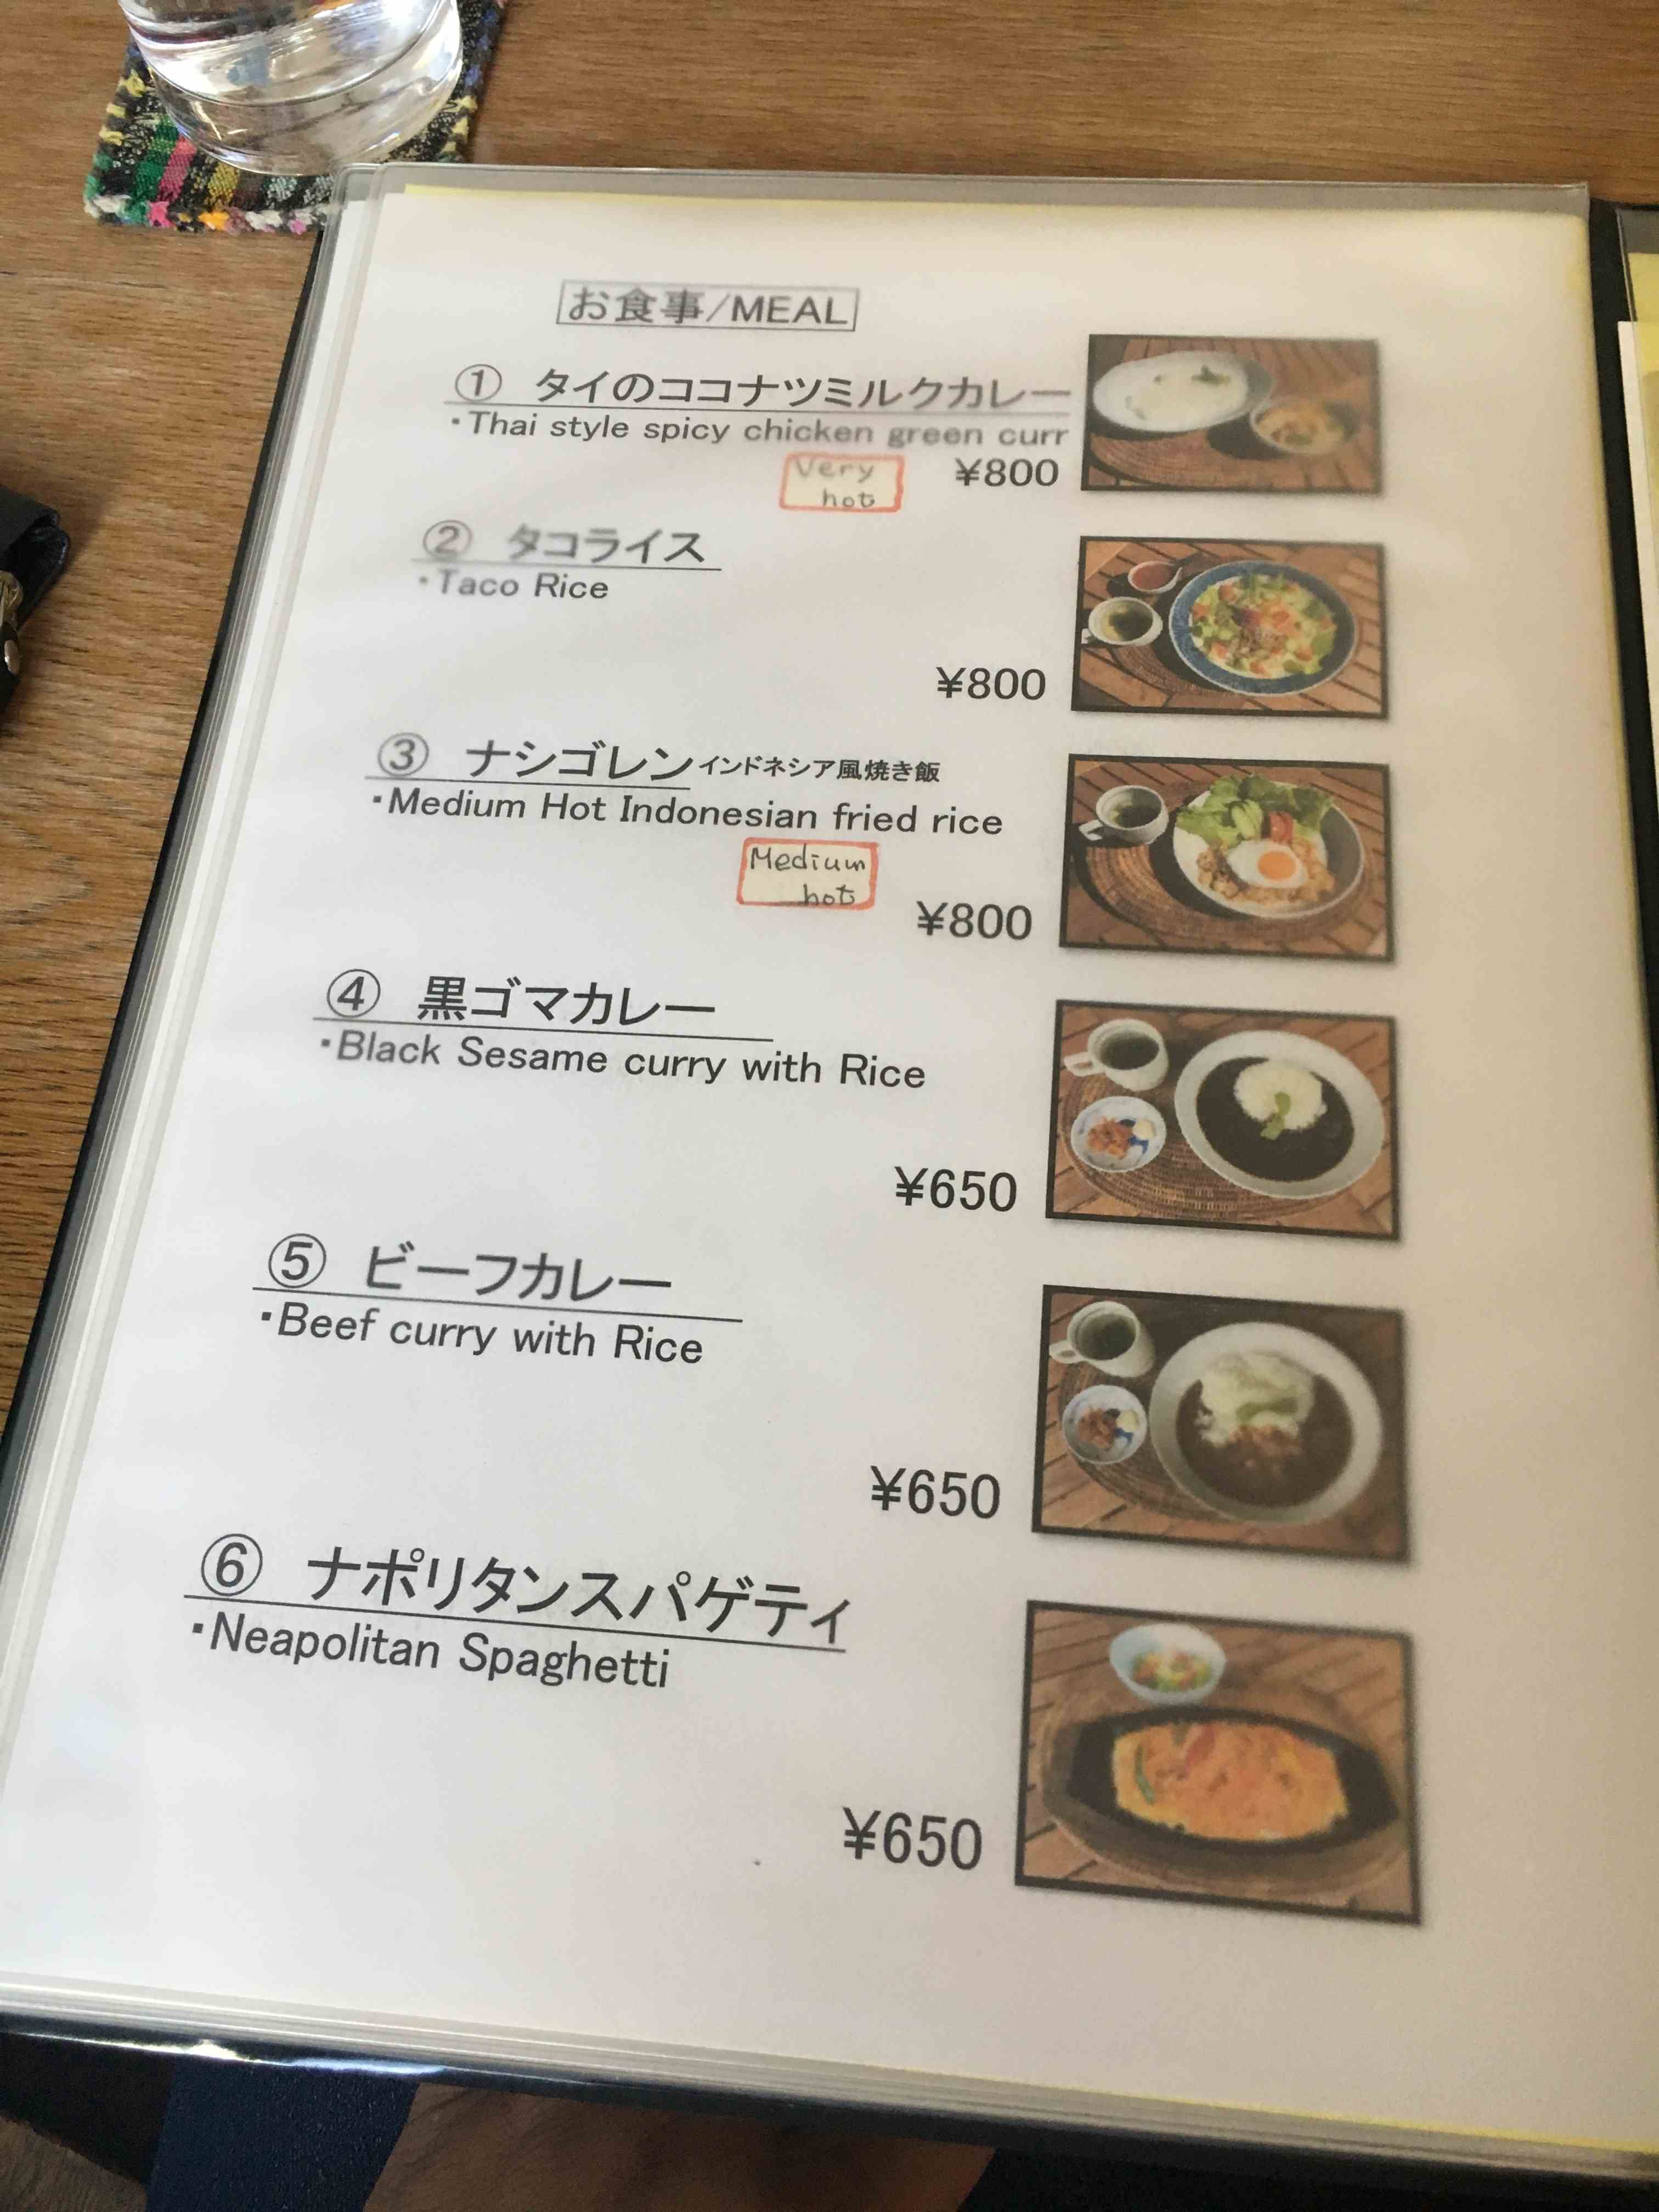 お食事/MEAL
① タイのココナツミルクカレー
・Thai style spicy chicken green curr
Very
hot
¥800
② タコライス
・Taco Rice
¥800
③ ナシゴレン インドネシア風焼き飯
・Medium Hot Indonesian fried rice
Medium
hot
¥800
④ 黒ゴマカレー
・Black Sesame curry with Rice
¥650
⑤ ビーフカレー
・Beef curry with Rice
¥650
⑥ ナポリタンスパゲティ
・Neapolitan Spaghetti
¥650